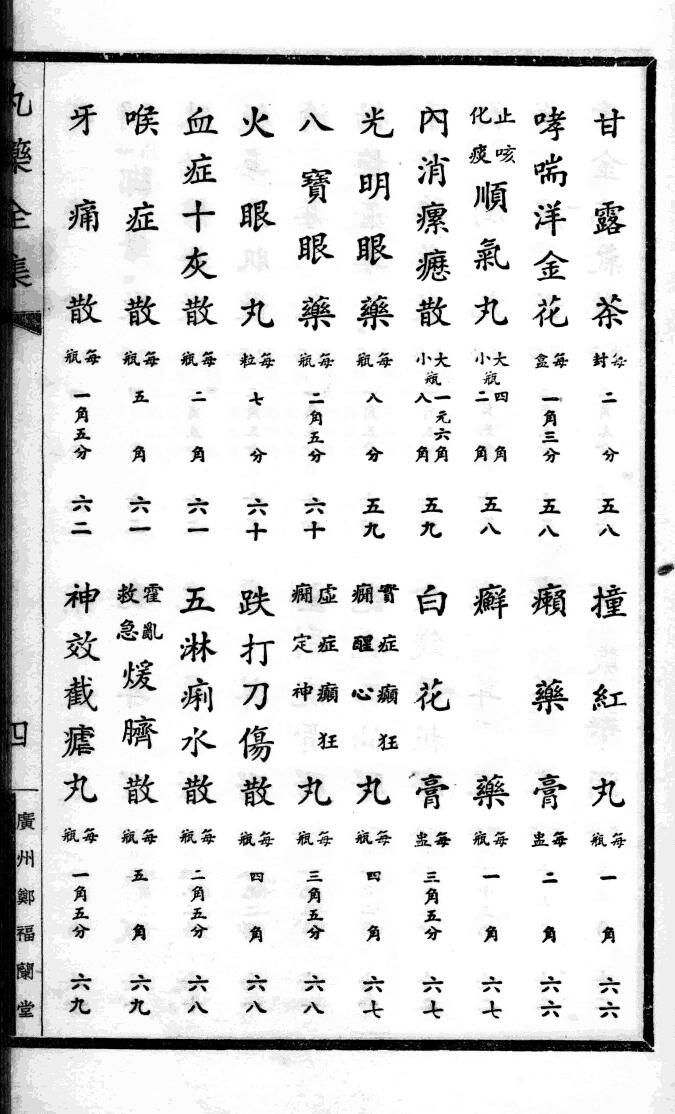 甘露茶 每封 二分 五八
哮喘洋金花 每盒 一角三分 五八
止咳化痰順氣丸 大小瓶 四角二角 五八
內消瘰癧散 大小瓶 一元六角八角 五九
光明眼藥 每瓶 八分 五九
八寶眼藥 每瓶 二角五分 六十
火眼丸 每粒 七分 六十
血症十灰散 每瓶 二角 六一
喉症散 每瓶 五角 六一
牙痛散 每瓶 一角五分 六二
撞紅丸 每瓶 一角 六六
癩藥膏 每盅 二角 六六
癬藥 每瓶 一角 六七
白花膏 每盅 三角五分 六七
實症癲狂癇醒心丸 每瓶 四角 六七
虛症癲狂癇定神丸 每瓶 三角五分 六八
跌打刀傷散 每瓶 四角 六八
五淋痢水散 每瓶 二角五分 六八
霍亂救急煖臍散 每瓶 五角 六九
神效截瘧丸 每瓶 一角五分 六九
丸藥全集
四
廣州鄭福蘭堂